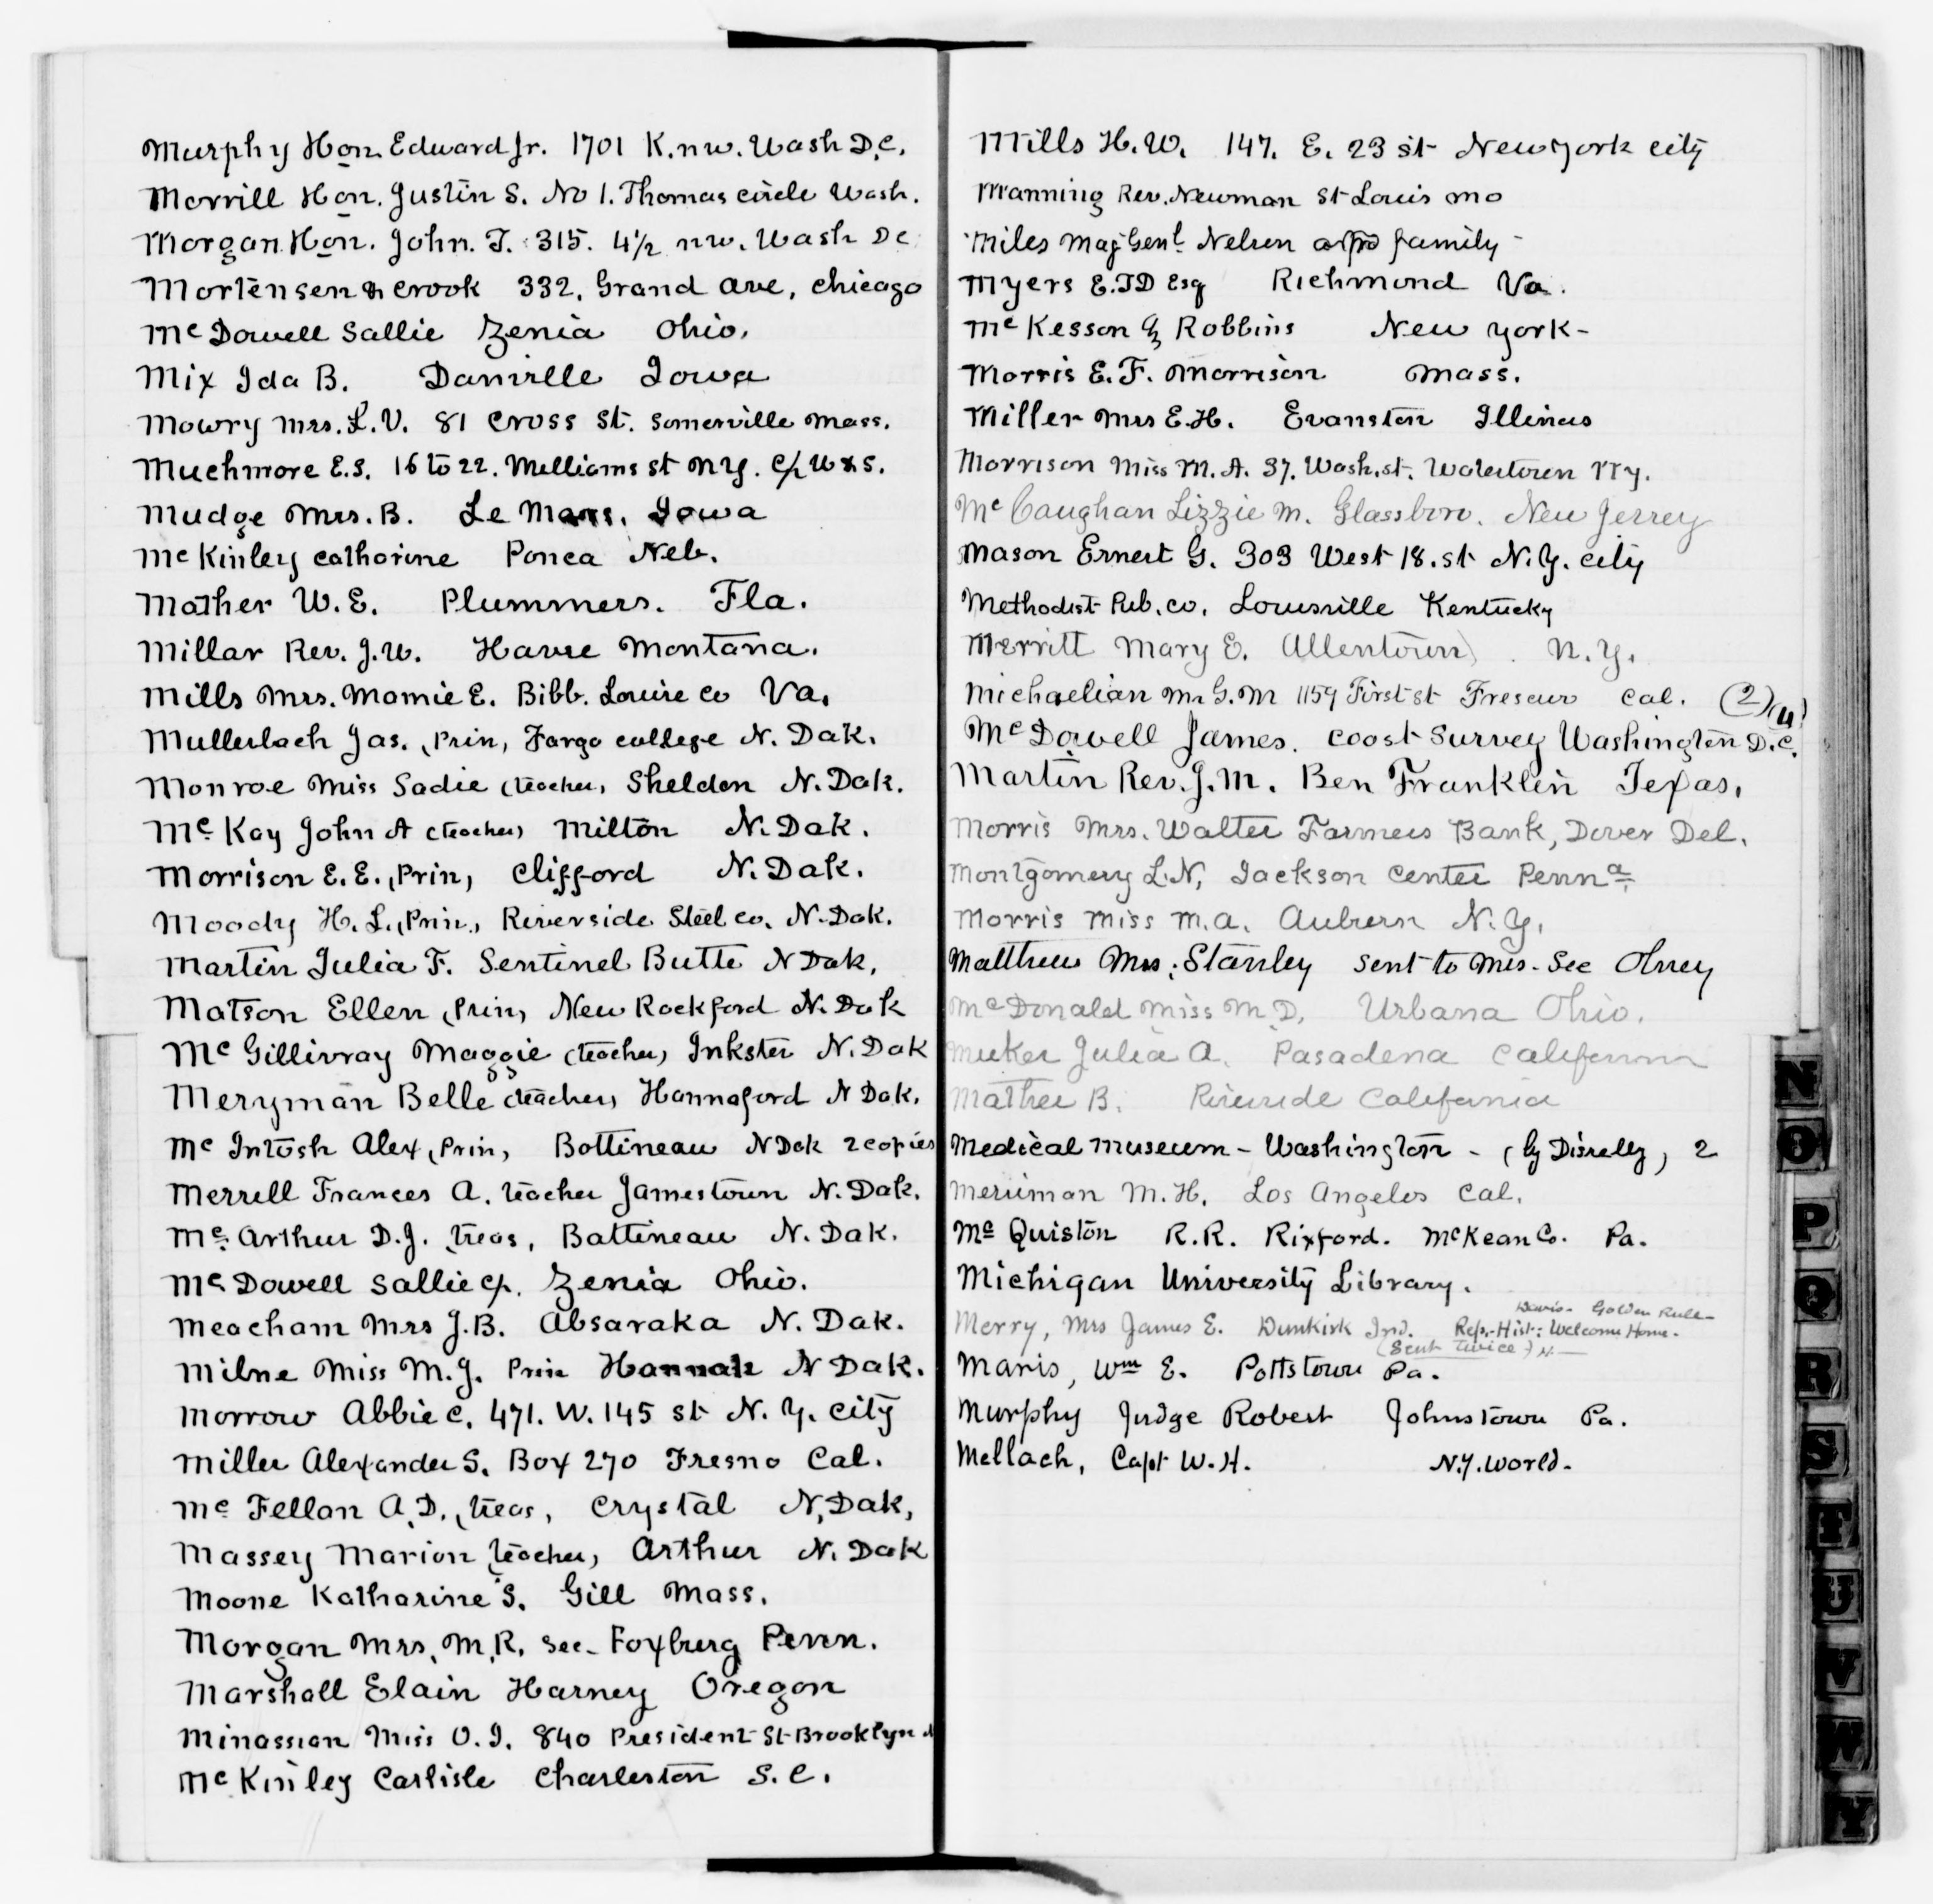 Murphy Hon Edward Jr. 1701 K. nw. Wash D.C.
Morrill Hon. Justin S. No 1. Thomas circle Wash.
Morgan Hon. John. T. 315. 4½ nw. Wash DC
Mortensen & Crook 332. Grand ave, Chicago
McDowell Sallie Zenia Ohio.
Mix Ida B. Danville Iowa
Mowry Mrs. L.V. 81 Cross St. Somerville Mass.
Muchmore E.S. 16 to 22. Williams st NY. C/ W & S.
Mudge Mrs. B. Le Mars, Iowa
McKinley Catharine Ponca Neb.
Mather W. E. Plummers. Fla.
Millar Rev. J.W. Havre Montana.
Mills Mrs. Mamie E. Bibb. Louise co Va.
Mullerbach Jas. (Prin) Fargo college N. Dak.
Monroe Miss Sadie (teacher) Sheldon N. Dak.
McKay John A (teacher) Milton N. Dak.
Morrison E. E. (Prin) Clifford N. Dak.
Moody H. L. (Prin) Riverside Steel co. N. Dak.
Martin Julia F. Sentinel Butte N Dak.
Matson Ellen (Prin) New Rockford N. Dak
McGillivray Maggie (teacher) Inkster N. Dak
Meryman Belle (teacher) Hannaford N Dak.
McIntosh Alex (Prin) Bottineau N Dak 2 copies
Merrell Frances A. teacher Jamestown N. Dak.
McArthur D. J. treas, Battineau N. Dak.
McDowell Sallie C/. Zenia Ohio.
Meacham Mrs J.B. Absaraka N. Dak.
Milne Miss M. J. Prin Hannah N Dak.
Morrow Abbie C. 471. W. 145 st N. Y. City
Miller Alexander S. Box 270 Fresno Cal.
McFellan A. D. (treas, Crystal N. Dak,
Massey Marion (teacher) Arthur N. Dak
Moone Katharine S. Gill Mass.
Morgan Mrs. M. R. Sec- Foxburg Penn.
Marshall Elain Harney Oregon
Minassian Miss O. I. 840 President St Brooklyn
McKinley Carlisle Charleston S. C.
Mills H. W. 147. E. 23 st New york city
Manning Rev. Newman St Louis Mo
Miles Maj Genl. Nelson family -
Myers E. TD Esq Richmond Va.
McKesson & Robbins New york -
Morris E. F. Morrison Mass.
Miller Mrs E.H. Evanston Illinois
Morrison Miss M. A. 37. Wash. st. Watertown NY.
McCaughan Lizzie M. Glassboro. New Jersey
Mason Ernest G. 303 West 18. st N. Y. city
Methodist Pub. co. Louisville Kentucky
Merritt Mary E. Allentown N. Y.
Michaelian Mr G. M 1159 First st Fresno Cal. (2)
McDowell James. Coast Survey Washington D.C.
Martin Rev. J. M. Ben Franklin Texas.
Morris Mrs. Walter Farmers Bank, Dover Del.
Montgomery L. N, Jackson Center Penna.
Morris Miss M. A. Auburn N. Y.
Matthew Mrs; Stanley sent to Mrs. Sec Olney
McDonald Miss M. D. Urbana Ohio.
Meeker Julia A. Pasadena California
Mather B. Riverside California
Medical Museum - Washington - (by Disrelly) 2
Merriman M. H. Los Angeles Cal.
McQuiston R. R. Rixford. McKean Co. Pa.
Michigan University Library.
Davis- Golden Rule-
Merry, Mrs James E. Dunkirk Ind. Rep.-Hist: Welcome Home.
(Sent twice)
Maris, Wm E. Pottstown Pa.
Murphy Judge Robert Johnstown Pa.
Mellach, Capt W. H. N.Y. World.
N
O
P
Q
R
S
T
U
V
W
Y